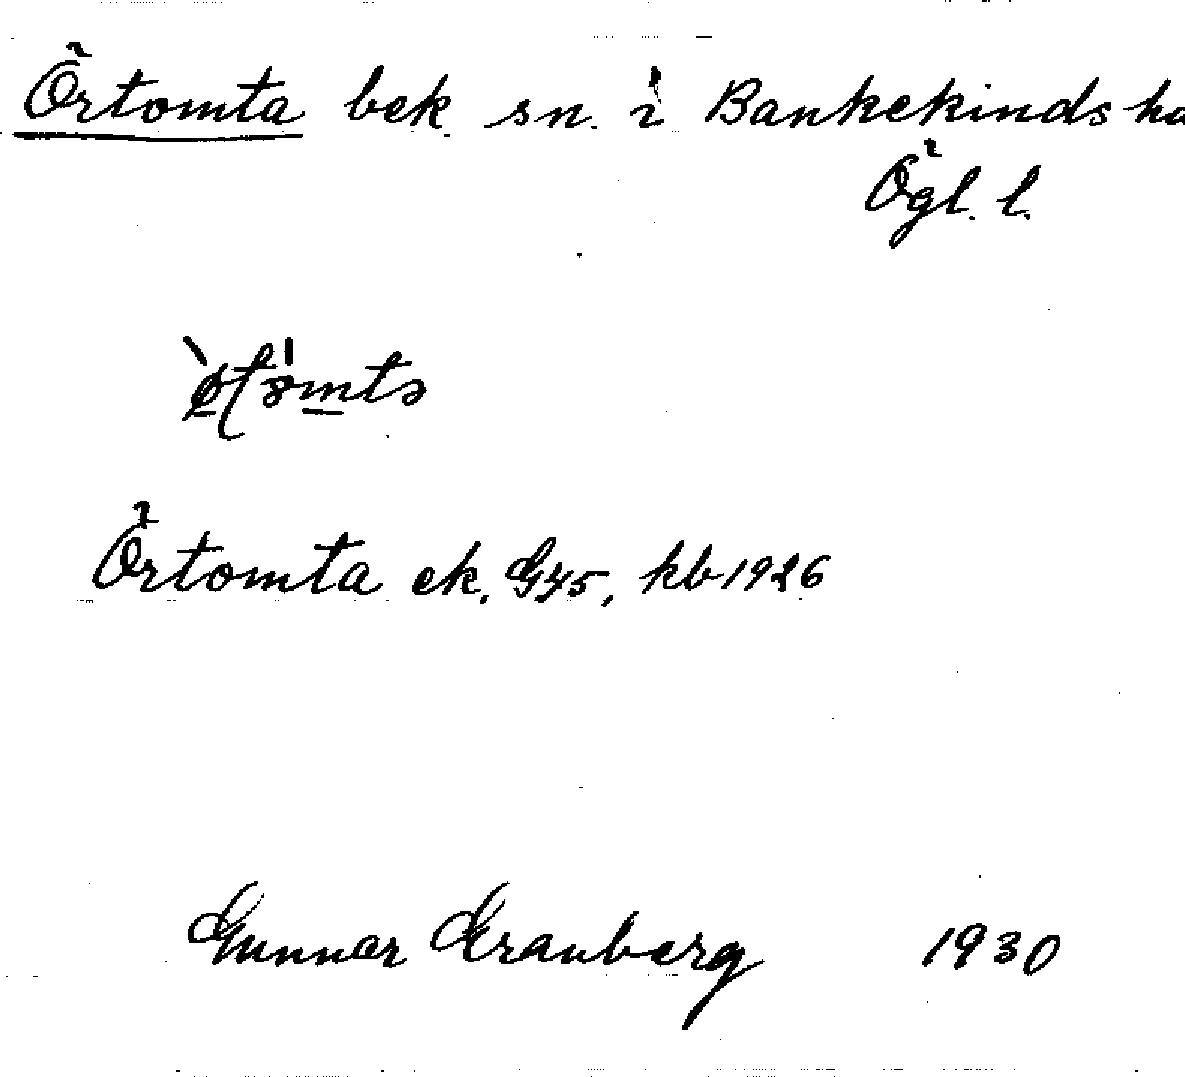 Örtomta bek. sn. i Bankekinds ha
Ögl. l.
Örtomta ek. G45, kb 1926
Gunnar Granberg 1930